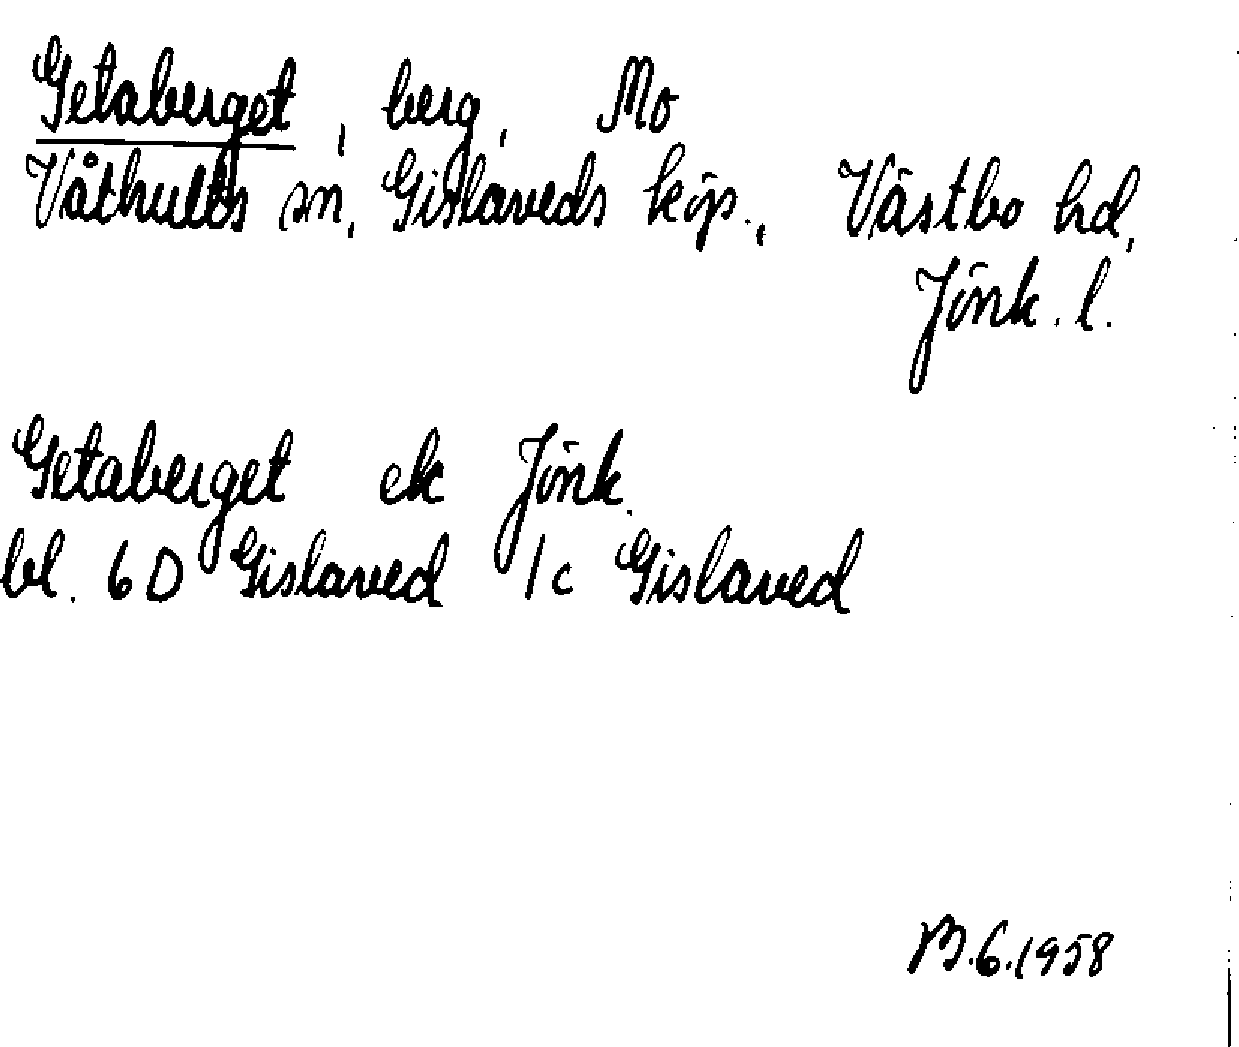 Getaberget, berg, Mo
Våthults sn, Gislaveds köp., Västbo hd,
Jönk. l.
Getaberget ek Jönk.
bl. 6D Gislaved 1c Gislaved
B.6.1958